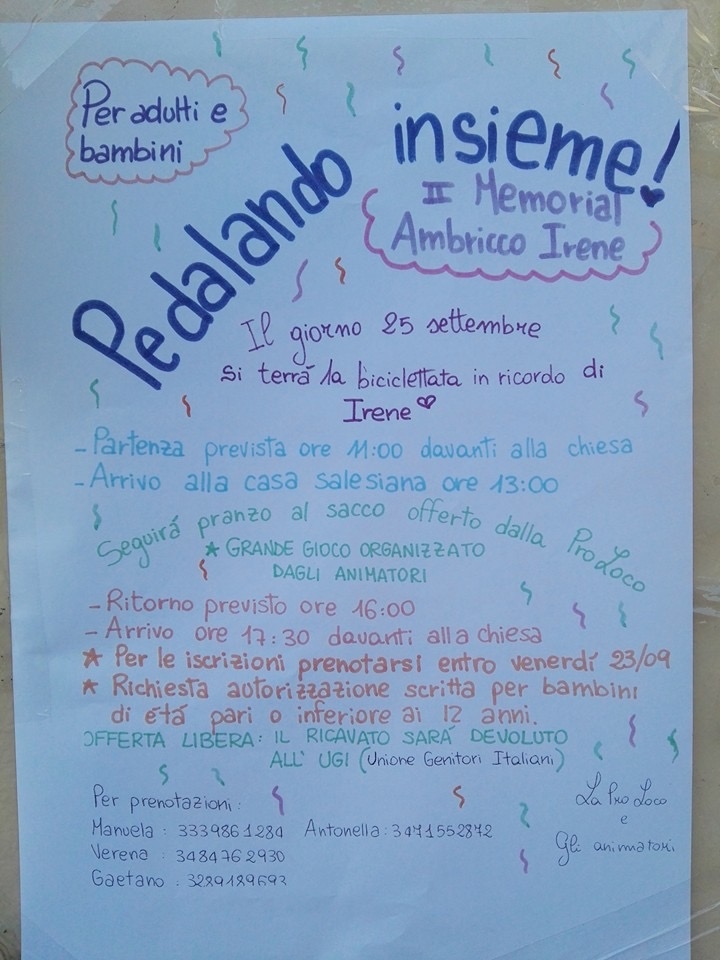 Per adulti e
bambini
Pedalando insieme!
II Memorial
Ambricco Irene
Il giorno 25 settembre
si terrá la biciclettata in ricordo di
Irene
- Partenza prevista ore 11:00 davanti alla chiesa
- Arrivo alla casa salesiana ore 13:00
Seguirá pranzo al sacco offerto dalla Pro Loco
* GRANDE GIOCO ORGANIZZATO
DAGLI ANIMATORI
- Ritorno previsto ore 16:00
- Arrivo ore 17:30 davanti alla chiesa
* Per le iscrizioni prenotarsi entro venerdí 23/09
* Richiesta autorizzazione scritta per bambini
di etá pari o inferiore ai 12 anni.
OFFERTA LIBERA: IL RICAVATO SARÁ DEVOLUTO
ALL' UGI (Unione Genitori Italiani)
Per prenotazioni:
Manuela: 3339861284 Antonella: 3471552872
Verena : 3484762930
Gaetano : 3289189693
La Pro Loco
e
Gli animatori